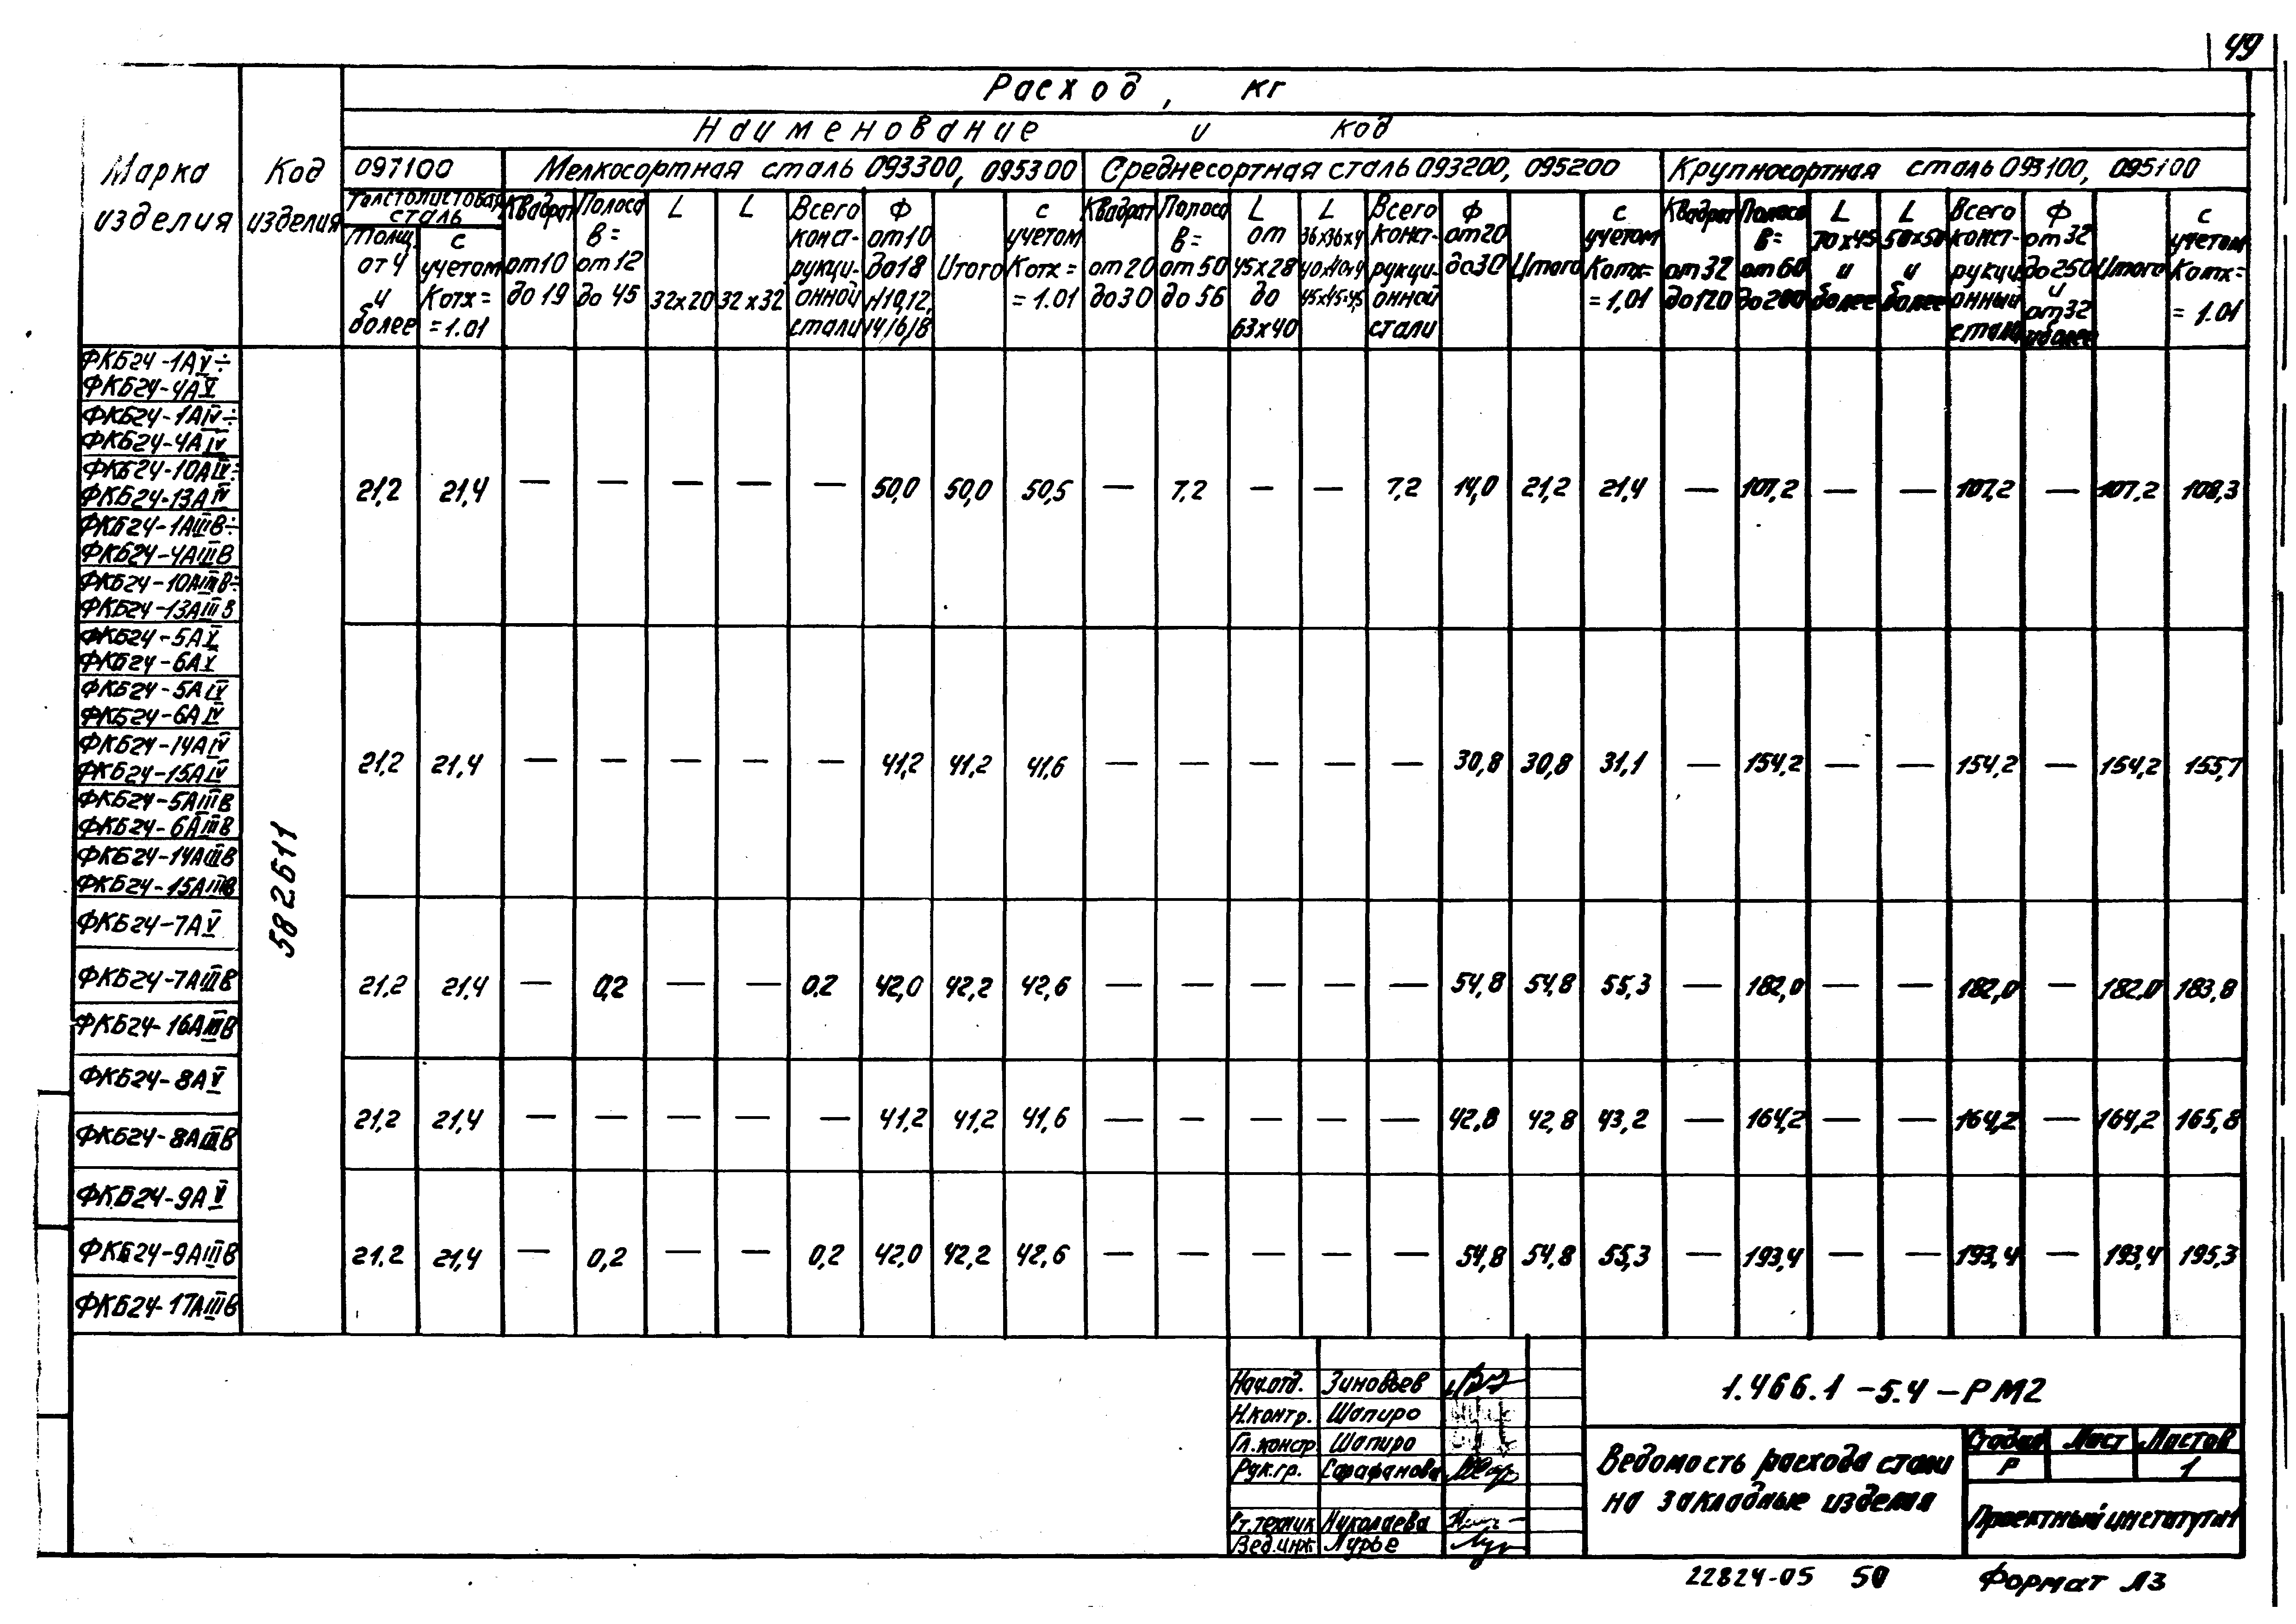 49
Расход, кг
Наименование и код
Марка изделия
Код изделия
097100
Мелкосортная сталь 093300, 095300
Среднесортная сталь 093200, 095200
Крупносортная сталь 093100, 095100
Толстолистовая сталь
Толщ. от 4 и более
с учетом Котх = = 1.01
Квадрат от 10 до 19
Полоса в = от 12 до 45
L 32х20
L 32х32
Всего конструкционной стали
Ф от 10 до 18 N10,12, 14,16,18
Итого
с учетом Котх = = 1.01
Квадрат от 20 до 30
Полоса в = от 50 до 56
L от 45х28 до 63х40
L 36х36х4 40х40х4 45х45х4,5
Всего конструкционной стали
Ф от 20 до 30
Итого
с учетом Котх = = 1,01
Квадрат от 32 до 120
Полоса в = от 60 до 200
L 70х45 и более
L 50х50 и более
Всего конструкционный стали
Ф от 32 до 250 и от 32 и более
Итого
с учетом Котх = = 1.01
582611
ФКБ24-1АV÷
ФКБ24-4АV
ФКБ24-1АIV÷
ФКБ24-4АIV
ФКБ24-10АIV÷
ФКБ24-13АIV
ФКБ24-1АIIIВ÷
ФКБ24-4АIIIВ
ФКБ24-10АIIIВ÷
ФКБ24-13АIIIВ
21,2 21,4 — — — — — 50,0 50,0 50,5 — 7,2 — — 7,2 14,0 21,2 21,4 — 107,2 — — 107,2 — 107,2 108,3
ФКБ24-5АV
ФКБ24-6АV
ФКБ24-5АIV
ФКБ24-6АIV
ФКБ24-14АIV
ФКБ24-15АIV
ФКБ24-5АIIIВ
ФКБ24-6АIIIВ
ФКБ24-14АIIIВ
ФКБ24-15АIIIВ
21,2 21,4 — — — — — 41,2 41,2 41,6 — — — — — 30,8 30,8 31,1 — 154,2 — — 154,2 — 154,2 155,7
ФКБ24-7АV
ФКБ24-7АIIIВ
ФКБ24-16АIIIВ
21,2 21,4 — 0,2 — — 0,2 42,0 42,2 42,6 — — — — — 54,8 54,8 55,3 — 182,0 — — 182,0 — 182,0 183,8
ФКБ24-8АV
ФКБ24-8АIIIВ
21,2 21,4 — — — — — 41,2 41,2 41,6 — — — — — 42,8 42,8 43,2 — 164,2 — — 164,2 — 164,2 165,8
ФКБ24-9АV
ФКБ24-9АIIIВ
ФКБ24-17АIIIВ
21.2 21,4 — 0,2 — — 0,2 42,0 42,2 42,6 — — — — — 54,8 54,8 55,3 — 193,4 — — 193,4 — 193,4 195,3
Нач.отд. Зиновьев
Н.контр. Шапиро
Гл.констр Шапиро
Рук.гр. Сарафанова
Ст.техник Николаева
Вед.инж. Лурье
1.466.1-5.4-РМ2
Ведомость расхода стали
на закладные изделия
Стадия Лист Листов
Р 1
Проектный институт №1
22824-05 50
Формат А3